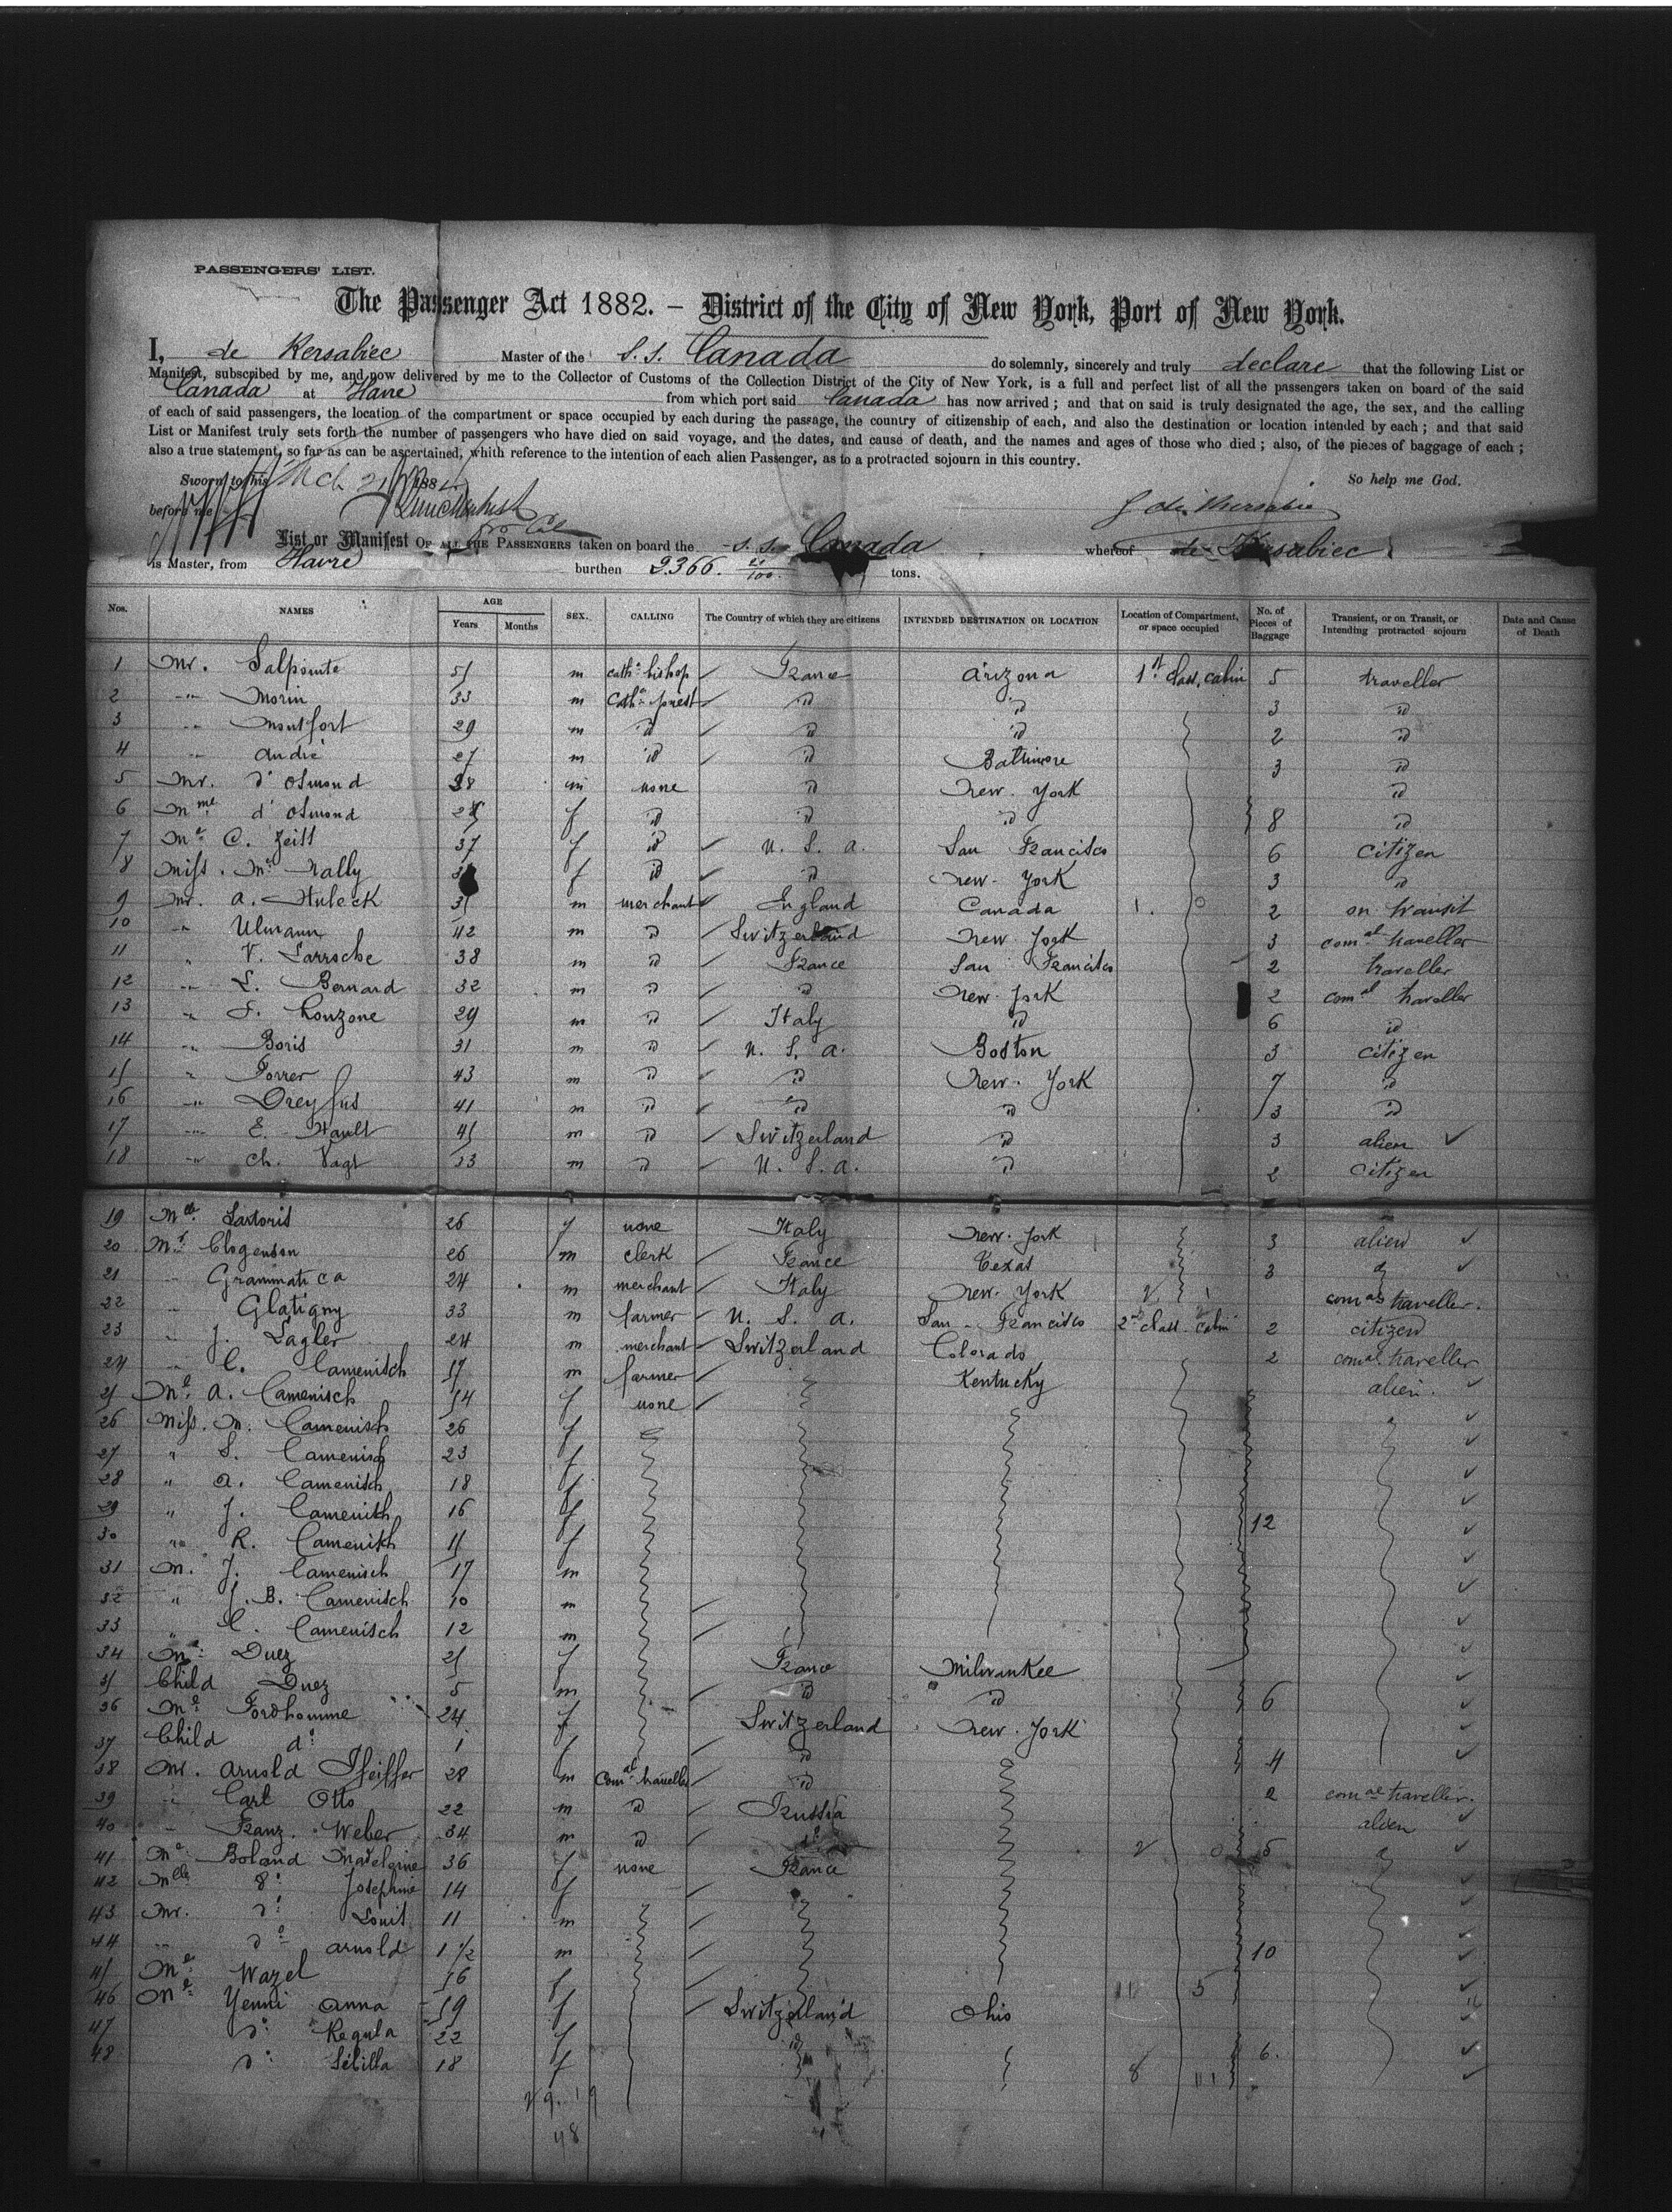 PASSENGERS' LIST.
The Passenger Act 1882. — District of the City of New York, Port of New York.
I, de Kersabiec Master of the S. S. Canada do solemnly, sincerely and truly declare that the following List or
Manifest, subscribed by me, and now delivered by me to the Collector of Customs of the Collection District of the City of New York, is a full and perfect list of all the passengers taken on board of the said
Canada at Havre from which port said Canada has now arrived; and that on said is truly designated the age, the sex, and the calling
of each of said passengers, the location of the compartment or space occupied by each during the passage, the country of citizenship of each, and also the destination or location intended by each; and that said
List or Manifest truly sets forth the number of passengers who have died on said voyage, and the dates, and cause of death, and the names and ages of those who died; also, of the pieces of baggage of each;
also a true statement, so far as can be ascertained, whith reference to the intention of each alien Passenger, as to a protracted sojourn in this country.
Sworn to this Mch 21 188 So help me God.
before me de Kersabiec
List or Manifest OF ALL THE PASSENGERS taken on board the S. S. Canada whereof de Kersabiec
is Master, from Havre burthen 2366. 21/100 tons.
Nos. NAMES AGE Years Months SEX. CALLING The Country of which they are citizens INTENDED DESTINATION OR LOCATION Location of Compartment, or space occupied No. of Pieces of Baggage Transient, or on Transit, or Intending protracted sojourn Date and Cause of Death
1 Mr. Salpointe 51 m cath. bishop France Arizona 1st class, cabin 5 traveller
2 " Morin 33 m Cath. priest id id 3 id
3 " Montfort 29 m id id id 2 id
4 " André 27 m id id Baltimore 3 id
5 Mr. d'Osmond 38 m none id New-York id
6 Mme d'Osmond f id id id 8 id
7 Me C. Zeitt 37 f id U. S. A. San Francisco 6 citizen
8 Miss. M. Nally f id id New-York 3 id
9 Mr. A. Huleck 31 m merchant England Canada 2 on transit
10 " Ulmann 42 m id Switzerland New York 3 comal traveller
11 " V. Larroche 38 m id France San Francisco 2 traveller
12 " L. Bernard 32 m id id New-York 2 comal traveller
13 " F. Conzone 29 m id Italy id 6 id
14 " Boris 31 m id U. S. A. Boston 3 citizen
15 " Forrer 43 m id id New-York 7 id
16 " Dreyfus 41 m id id id 3 id
17 " E. Hault 45 m id Switzerland id 3 alien
18 " Ch. Vagt 33 m id U. S. A. id 2 citizen
19 Mlle Sartoris 26 f none Italy New-York 3 alien
20 Mr Clogenson 26 m clerk France Texas 3
21 " Grammatica 24 m merchant Italy New-York comal traveller.
22 " Glatigny 33 m farmer U. S. A. San-Francisco 2nd class cabin 2 citizen
23 " J. Lagler 24 m merchant Switzerland Colorado 2 comal traveller
24 " C. Camenisch 57 m farmer Kentucky alien.
25 Me A. Camenisch 54 f none
26 Miss. M. Camenisch 26 f
27 " S. Camenisch 23 f
28 " A. Camenisch 18 f
29 " J. Camenisch 16 f 12
30 " R. Camenisch 15 f
31 M. J. Camenisch 17 m
32 " J. B. Camenisch 10 m
33 " C. Camenisch 12 m
34 Me Duez 25 f France Milwaukee
35 Child Duez 5 m id id 6
36 Me Fordhomme 24 f Switzerland New-York
37 Child do 1 f id 4
38 Mr. Arnold Pfeiffer 28 m Comal traveller id 2 comal traveller.
39 " Carl Otto 22 m id Prussia alien
40 " Franz. Weber 34 m id do 5
41 Me Boland Madeleine 36 f none France
42 Mlle do Josephine 14 f
43 Mr. do Louis 11 m
44 " do Arnold 1 1/2 m 10
45 Me Wazel 56 f
46 Me Yenni Anna 59 f Switzerland Ohio
47 do Regula 22 f id 6.
48 do Sibilla 18 f
29. 19
48